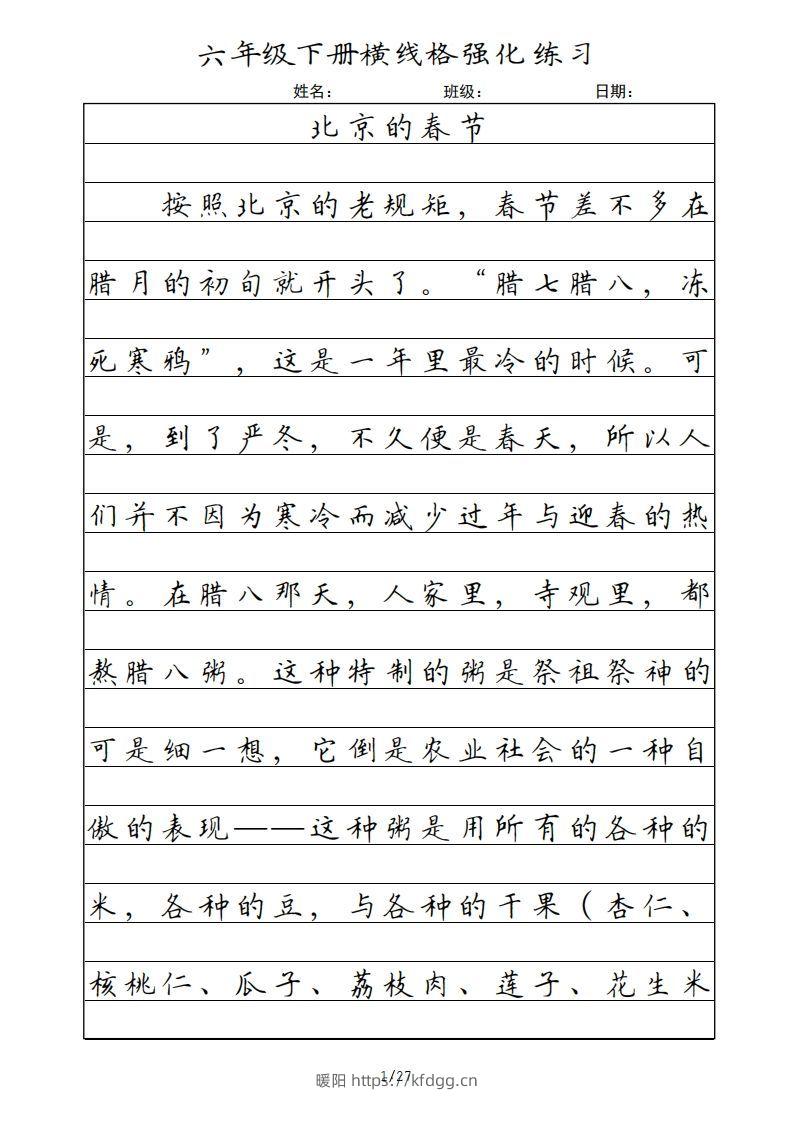 六年级下册横线格强化练习
姓名： 班级： 日期：
北京的春节
按照北京的老规矩，春节差不多在
腊月的初旬就开头了。“腊七腊八，冻
死寒鸦”，这是一年里最冷的时候。可
是，到了严冬，不久便是春天，所以人
们并不因为寒冷而减少过年与迎春的热
情。在腊八那天，人家里，寺观里，都
熬腊八粥。这种特制的粥是祭祖祭神的
可是细一想，它倒是农业社会的一种自
傲的表现——这种粥是用所有的各种的
米，各种的豆，与各种的干果（杏仁、
核桃仁、瓜子、荔枝肉、莲子、花生米
1/27
暖阳 https://kfdgg.cn